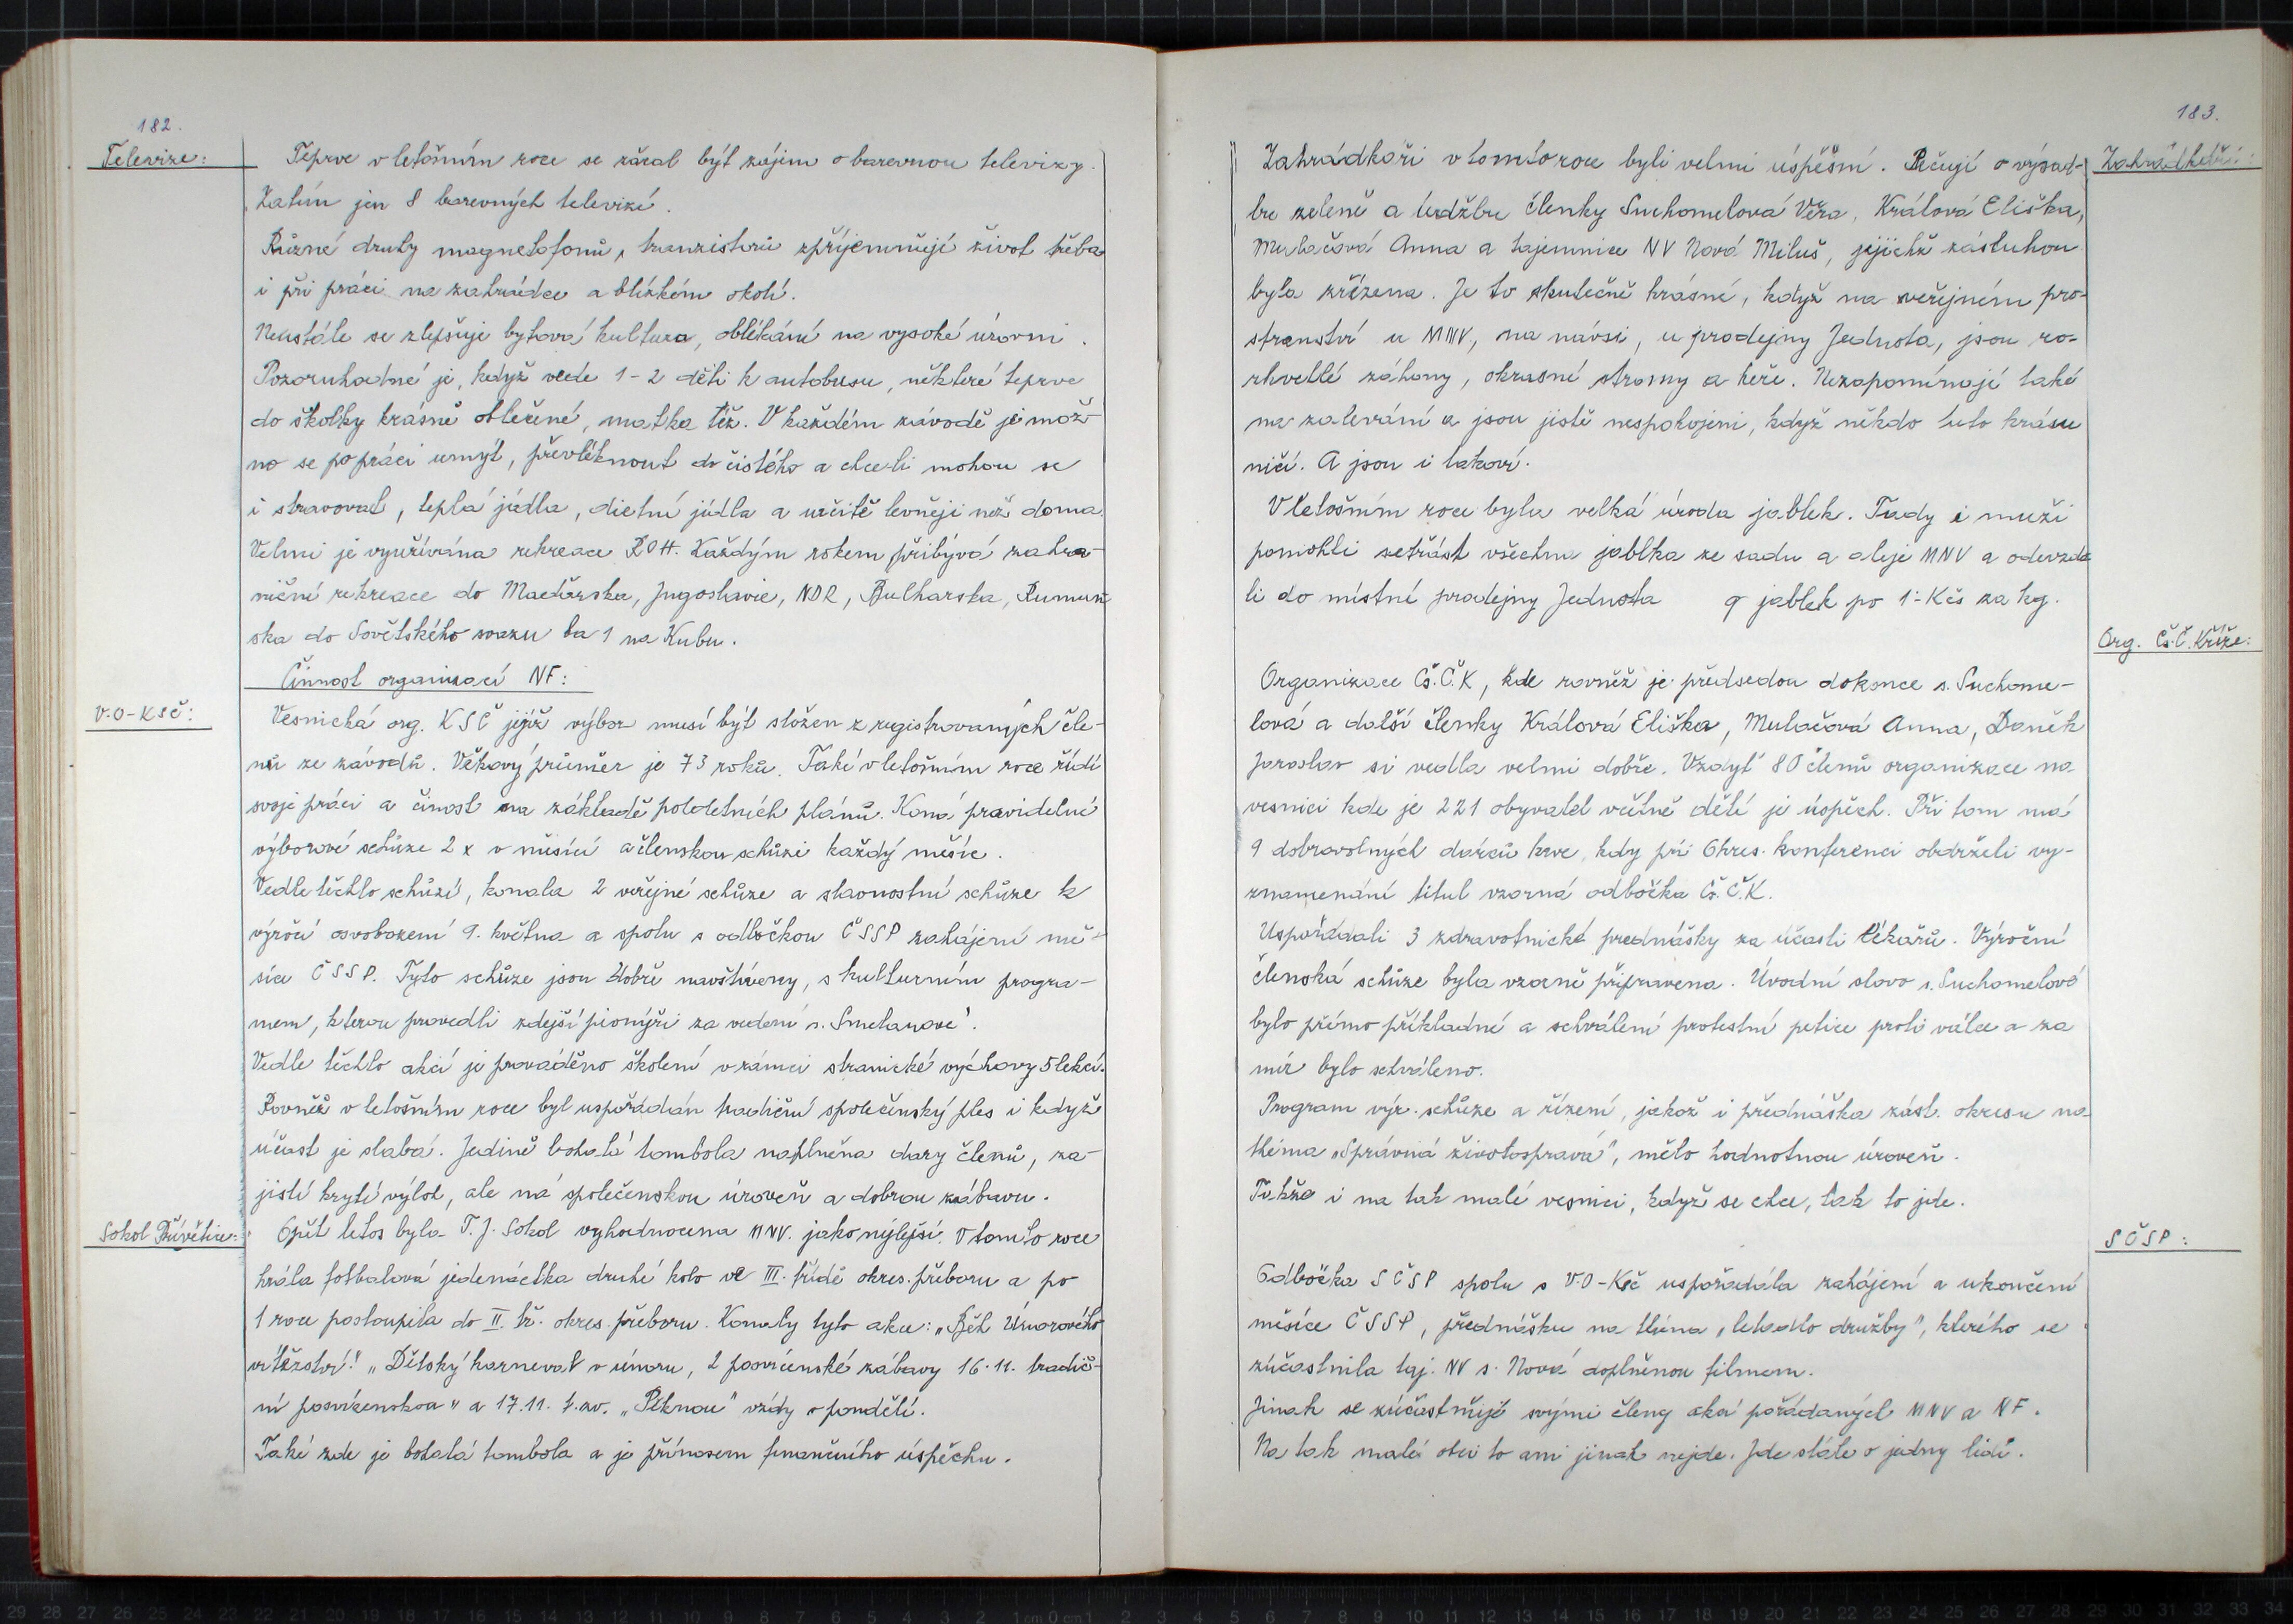 182.
Televize:
Teprve v letošním roce se začal být zájem o barevnou televizy.
Zatím jen 8 barevných televizí.
Různé druhy magnetofonů, tranzistorů zpříjemnují život třeba
i při práci na zahrádce a blízkém okolí.
Neustále se zlepšuje bytová kultura, oblékání na vysoké úrovni.
Pozoruhodné je, když vede 1-2 děti k autobusu, některé teprve
do školky krásně oblečené, matka též. V každém závodě je mož-
no se po práci umýt, převléknout do čistého a chce-li mohou se
i stravovat, teplá jídla, dietní jídla a určitě levněji než doma.
Velmi je využívána rekreace ROH. Každým rokem přibývá zahra-
niční rekreace do Maďarska, Jugoslavie, NDR, Bulharska, Rumun
ska do Sovětského svazu ba 1 na Kubu.
Činnost organizací NF:
V.O-KSČ:
Vesnická org. KSČ jejíž výbor musí být složen z registrovaných čle-
nů ze závodů. Věkový průměr je 73 roků. Také v letošním roce řídí
svoje práci a činost na základě pololetních plánů. Koná pravidelné
výborové schůze 2 x v měsíci a členskou schůzi každý měsíc.
Vedle těchto schůzí, konala 2 veřejné schůze a slavnostní schůze k
výročí osvobození 9. května a spolu s odbočkou ČSSP zahájení mě-
síce ČSSP. Tyto schůze jsou dobře navštíveny, s kulturním progra-
mem, kterou provedli zdejší pionýři za vedení s. Smetanové.
Vedle těchto akcí je prováděno školení v rámci stranické výchovy 5 lekcí.
Rovněž v letošním roce byl uspořádán tradiční společenský ples i když
účast je slabá. Jedině bohatá tombola naplněna dary členů, za-
jistí krytí výloh, ale ná společenskou úroveň a dobrou zábavu.
Sokol Dřívětice:
Opět letos byla T.J. Sokol vyhodnocena MNV. jako nejlepší. V tomto roce
hrála fotbalová jedenáctka druhé kolo ve III. třídě okres. přeboru a po
1 roce postoupila do II. tř. okres. přeboru. Konaly tyto akce: „Běh Únorového
vítězství". „Dětský karneval v únoru, 2 posvícenské zábavy 16.11. tradič-
ní posvícenskou" a 17.11. t.zv. „Pěknou" vždy v pondělí.
Také zde je bohatá tombola a je přínosem finančního úspěchu.
183.
Zahrádkáři:
Zahrádkáři v tomto roce byli velmi úspěšní. Pečují o výsad-
bu zeleně a údržbu členky Suchomelová Věra, Králová Eliška,
Mulačová Anna a tajemnice NV Nová Miluš, jejichž zásluhou
byla zřízena. Je to skutečně krásné, když na veřejném pro-
stranství u MNV, na návsi, u prodejny Jednota, jsou ro-
zkvetlé záhony, okrasné stromy a keře. Nezapomínají také
na zalevání a jsou jistě nespokojeni, když někdo tuto krásu
ničí. A jsou i takoví.
V letošním roce byla velká úroda jablek. Tady i muži
pomohli setřást všechna jablka ze sadu a aleje MNV a odevzda
li do místní prodejny Jednota q jablek po 1.- Kčs za kg.
Org. Čs.Č. Kříže:
Organizace Čs.Č.K, kde rovněž je předsedou dokonce s. Suchome-
lová a další členky Králová Eliška, Mulačová Anna, Daněk
Jaroslav si vedla velmi dobře. Vzdyť 80 členů organizace na
vesnici kde je 221 obyvatel včetně dětí je úspěch. Při tom má
9 dobrovolných dárců krve, kdy při Okres. konferenci obdrželi vy-
znamenání titul vzorná odbočka Čs.Č.K.
Uspořádali 3 zdravotnické prednášky za účasti lékařů. Výroční
členská schůze byla vzorně připravena. Úvodní slovo s. Suchomelové
bylo přímo příkladné a schválení protestní petice proti válce a za
mír bylo schváleno.
Program výr. schůze a řízení, jakož i přednáška zást. okresu na
théma „Správná životospravá", mělo hodnotnou úroveň.
Takže i na tak malé vesnici, když se chce, tak to jde.
SČSP:
Odbočka SČSP spolu s V.O-KSČ uspořádála zahájení a ukončení
měsíce ČSSP, přednášku na théma „letadlo družby", kterého se
zúčastnila taj. NV s. Nová doplněnou filmem.
Jinak se zúčastňují svými členy akcí pořádaných MNV a NF.
Na tak malé obci to ani jinak nejde. Jde stále o jedny lidi.